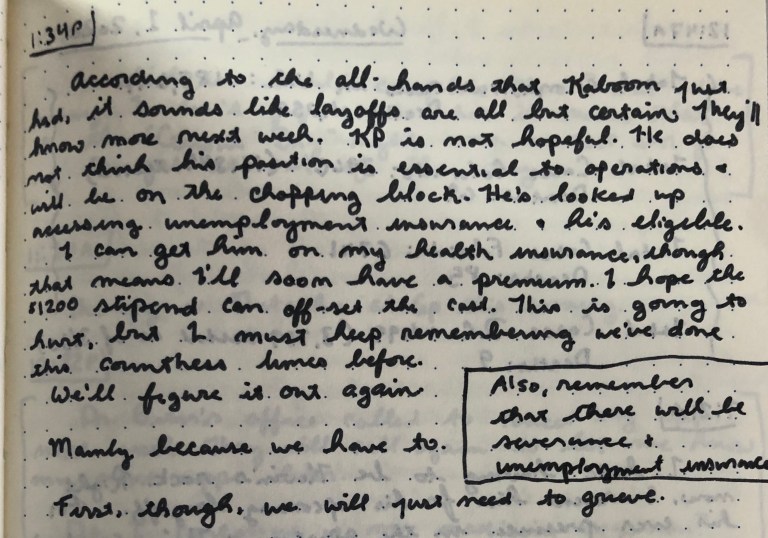 1:34P
According to the all-hands that Kaboom just
had, it sounds like layoffs are all but certain. They'll
know more next week. KP is not hopeful. He does
not think his position is essential to operations &
will be on the chopping block. He's looked up
accessing unemployment insurance & he's eligible.
I can get him on my health insurance, though
that means I'll soon have a premium. I hope the
$1200 stipend can off-set the cost. This is going to
hurt, but I must keep remembering we've done
this countless times before.
We'll figure it out again
Mainly because we have to.
Also, remember
that there will be
severance &
unemployment insurance
First, though, we will just need to grieve.